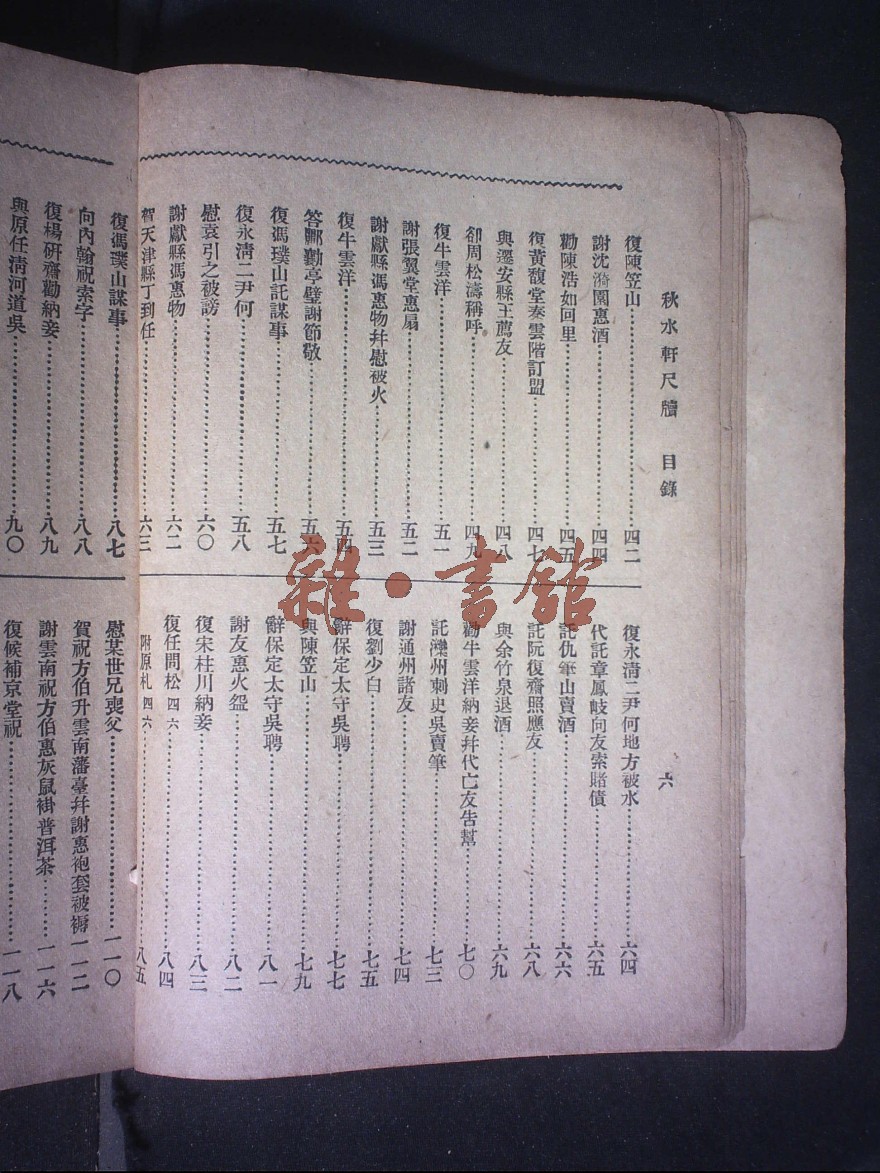 秋水軒尺牘 目錄 六
復陳笠山……四二
謝沈漪園惠酒……四四
勸陳浩如回里……四五
復黃馥堂秦雲階訂盟……四七
與遷安縣王薦友……四八
卻周松濤稱呼……四九
復牛雲洋……五一
謝張翼堂惠扇……五二
謝獻縣馮惠物幷慰被火……五三
復牛雲洋……五四
答酈勤亭璧謝節敬……五六
復馮璞山託謀事……五七
復永清二尹何……五八
慰袁引之被謗……六〇
謝獻縣馮惠物……六二
賀天津縣丁到任……六三
復永清二尹何地方被水……六四
代託章鳳岐向友索賭債……六五
託仇筆山賣酒……六六
託阮復齋照應友……六八
與余竹泉退酒……六九
勸牛雲洋納妾幷代亡友告幫……七〇
託灤州刺史吳賣筆……七三
謝通州諸友……七四
復劉少白……七五
辭保定太守吳聘……七七
與陳笠山……七九
辭保定太守吳聘……八一
謝友惠火盌……八二
復宋桂川納妾……八三
復任問松四六……八四
附原札四六……八五
復馮璞山謀事……八七
向內翰祝索字……八八
復楊研齋勸納妾……八九
與原任清河道吳……九〇
慰某世兄喪父……一一〇
賀祝方伯升雲南藩臺幷謝惠袍套被褥一一二
謝雲南祝方伯惠灰鼠褂普洱茶……一一六
復候補京堂祝……一一八
雜·書館